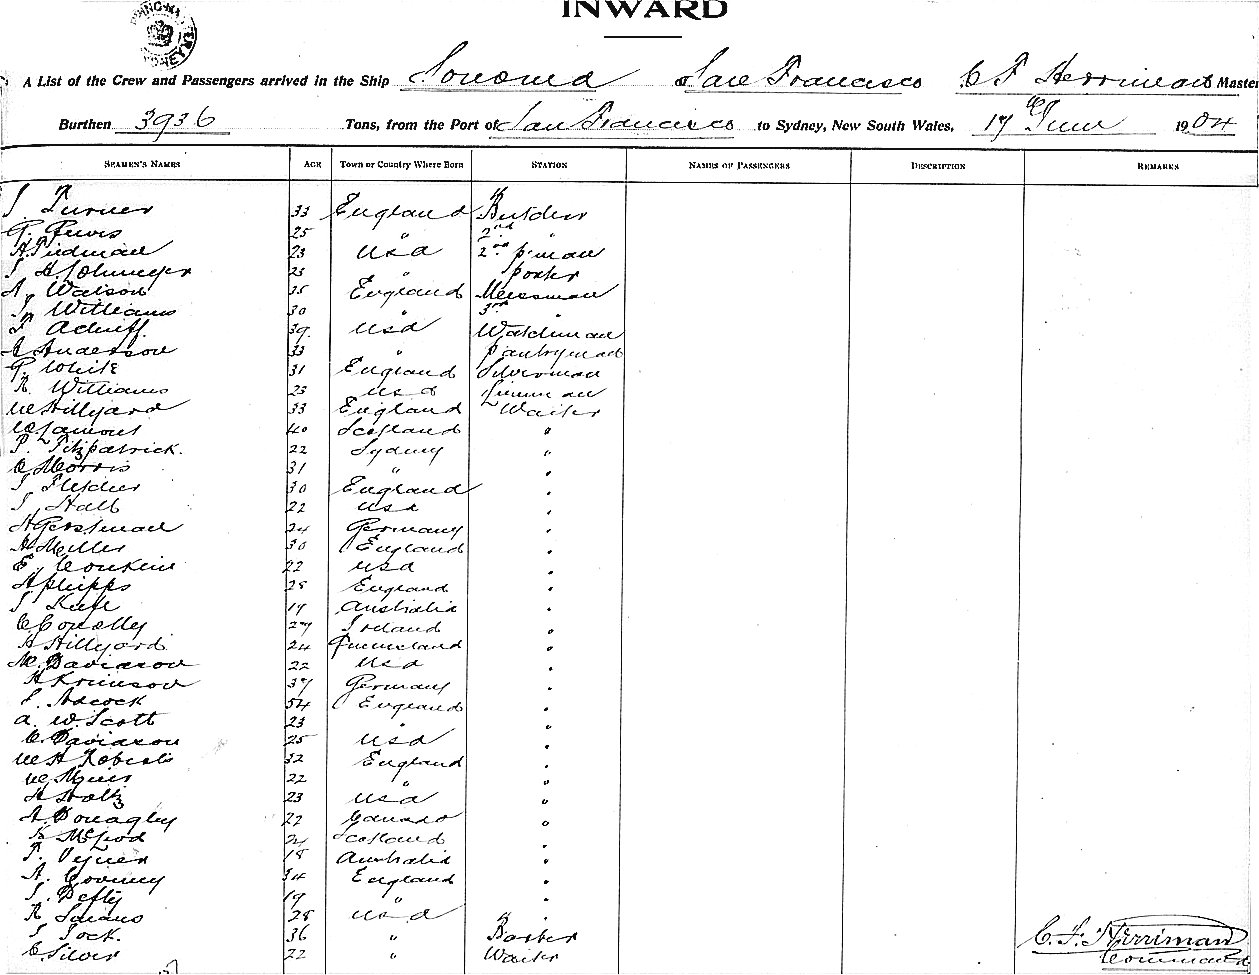 INWARD
A List of the Crew and Passengers arrived in the Ship Sonoma San Francisco C F Herriman Master
Burthen 3936 Tons, from the Port of San Francisco to Sydney, New South Wales, 17 June 1904
SEAMEN'S NAMES AGE Town or Country Where Born STATION NAMES OF PASSENGERS DESCRIPTION REMARKS
J. Turner 33 England Butcher
G. Lewis 25 " 2nd "
H. Piedman 23 USA 2nd p.man
23 " Porter
A. Watson 35 England Messman
J. Williams 30 " 3rd
39 USA Watchman
Anderson 33 " Pantryman
G. White 31 England Silverman
R. Williams 23 USA Linenman
W Hillyard 33 England Waiter
W Lamont 40 Scotland "
P. Fitzpatrick. 22 Sydney "
C Morris 31 " "
J Fletcher 30 England "
J. Hall 22 USA "
H Gerstman 24 Germany "
H Miller 30 England "
E. Conkin 22 USA "
H Phipps 25 England "
J Keefe 19 Australia "
C Conelly 27 Ireland "
H Hillyard 24 Queensland "
M. Davidson 22 USA "
37 Germany "
Adcock 54 England "
A. W. Scott 23 " "
C. Davidson 25 USA "
W H Roberts 32 England "
W 22 " "
H Holtz 23 USA "
A. Donaghy 22 Canada "
K McLeod Scotland "
18 Australia "
A. 34 England "
J. Defty 19 " "
R 28 USA "
J Jock. 36 " Barber
C. Silver 22 " Waiter
C. F. Herriman
Commander